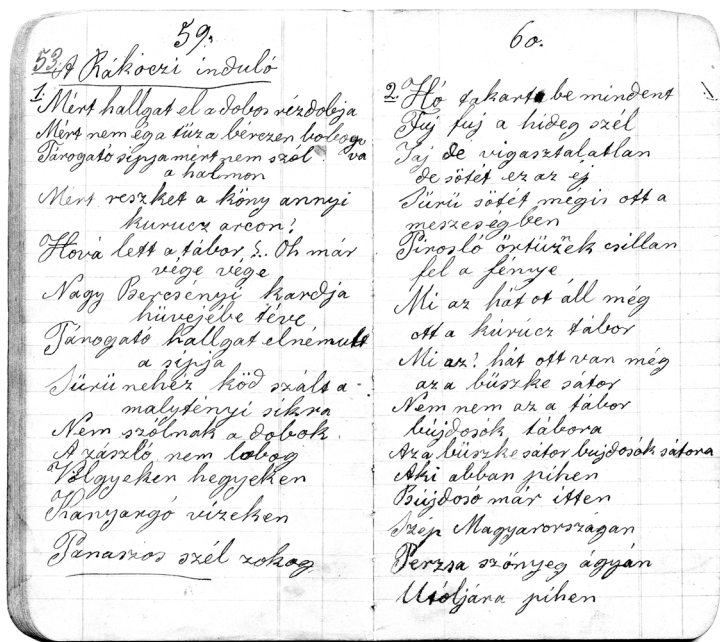 59.
53. A Rákóczi induló
1. Mért hallgat el a dobos rézdobja
Mért nem ég a tűz a bérczen lobogva
Tárogató sípja mért nem szól
a halmon
Mért reszket a köny annyi
kurucz arcon?
Hová lett a tábor ?.. Oh már
vége vége
Nagy Bercsényi kardja
hüvejébe téve
Tánogató hallgat elnémult
a sípja
Sürü nehéz köd szált a
malytényi síkra
Nem szólnak a dobok
A zászló nem lobog
Völgyeken hegyeken
Kanyargó vizeken
Panaszos szél zokog
60.
2. Hó takart be mindent
Fuj fuj a hideg szél
Jaj de vigasztalatlan
de sötét ez az éj
Sürü sötét mégis ott a
meszeségben
Pirosló örtüzek csillan
fel a fénye
Mi az hát ot áll még
ott a kúrúcz tábor
Mi az? hát ott van még
az a büszke sátor
Nem nem az a tábor
bújdosók tábora
Az a büszke sátor bujdosók sátora
Aki abban pihen
Bújdosó már itten
Szép Magyarországan
Perzsa szőnyeg ágyán
Utóljára pihen